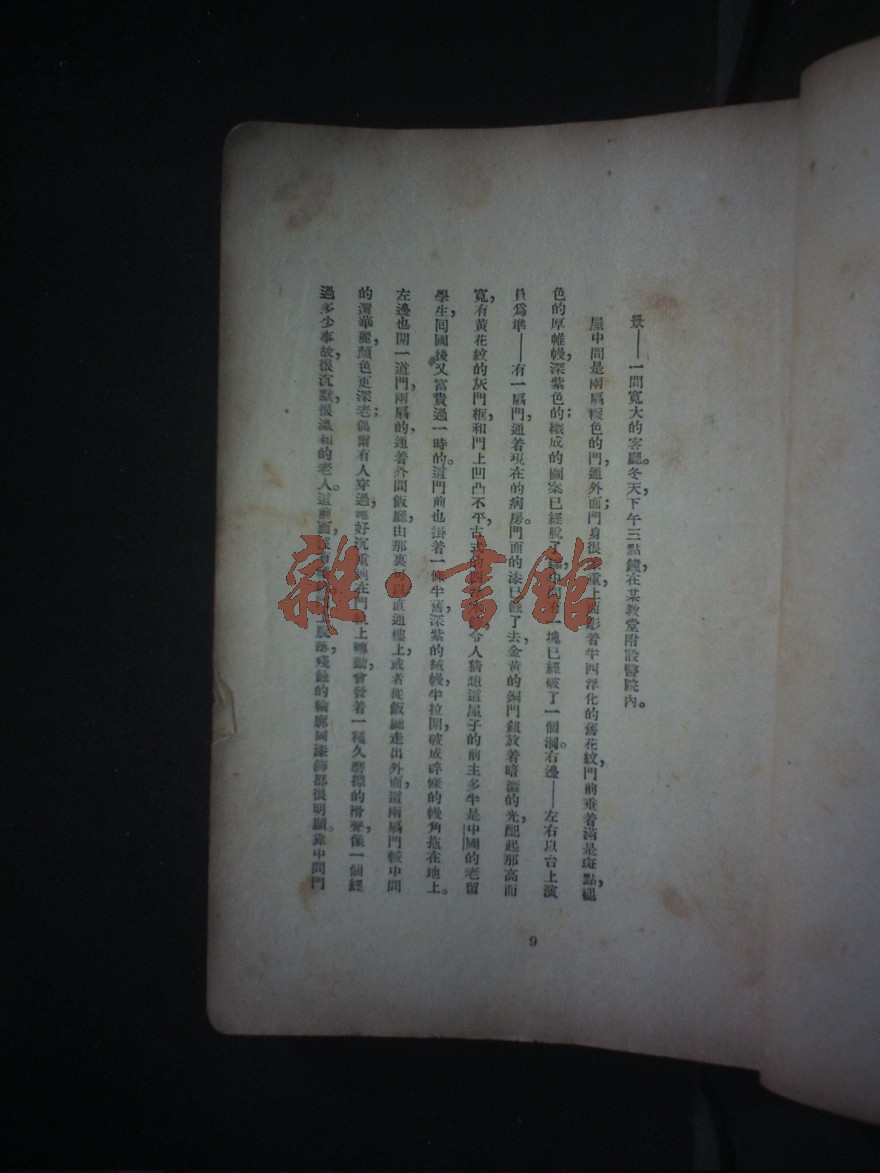 景——一間寬大的客廳。冬天,下午三點鐘,在某教堂附設醫院內。
屋中間是兩扇棕色的門,通外面;門身很重,上面彫着半西洋化的舊花紋,門前垂着滿是斑點,褪
色的厚帷幔,深紫色的;織成的圖案已經脫了線,中間有一塊已經破了一個洞。右邊——左右以台上演
員爲準——有一扇門,通着現在的病房。門面的漆已蝕了去,金黃的銅門鈕放着暗澀的光,配起那高而
寬,有黃花紋的灰門框,和門上凹凸不平,古 的西 令人猜想這屋子的前主多半是中國的老留
學生,回國後又富貴過一時的。這門前也掛着一條半舊,深紫的絨幔,半拉開,破成碎條的幔角拖在地上。
左邊也開一道門,兩扇的,通着外間飯廳,由那裏可以直通樓上,或者從飯廳走出外面,這兩扇門較中間
的還華麗,顏色更深老;偶爾有人穿過,它好沉重地在門 上轉動,會發着一種久磨擦的滑聲,像一個經
過多少事故,很沉默,很溫和的老人。這前面 上脫落,殘蝕的輪廓同漆飾都很明顯。靠中間門
9
雜·書館